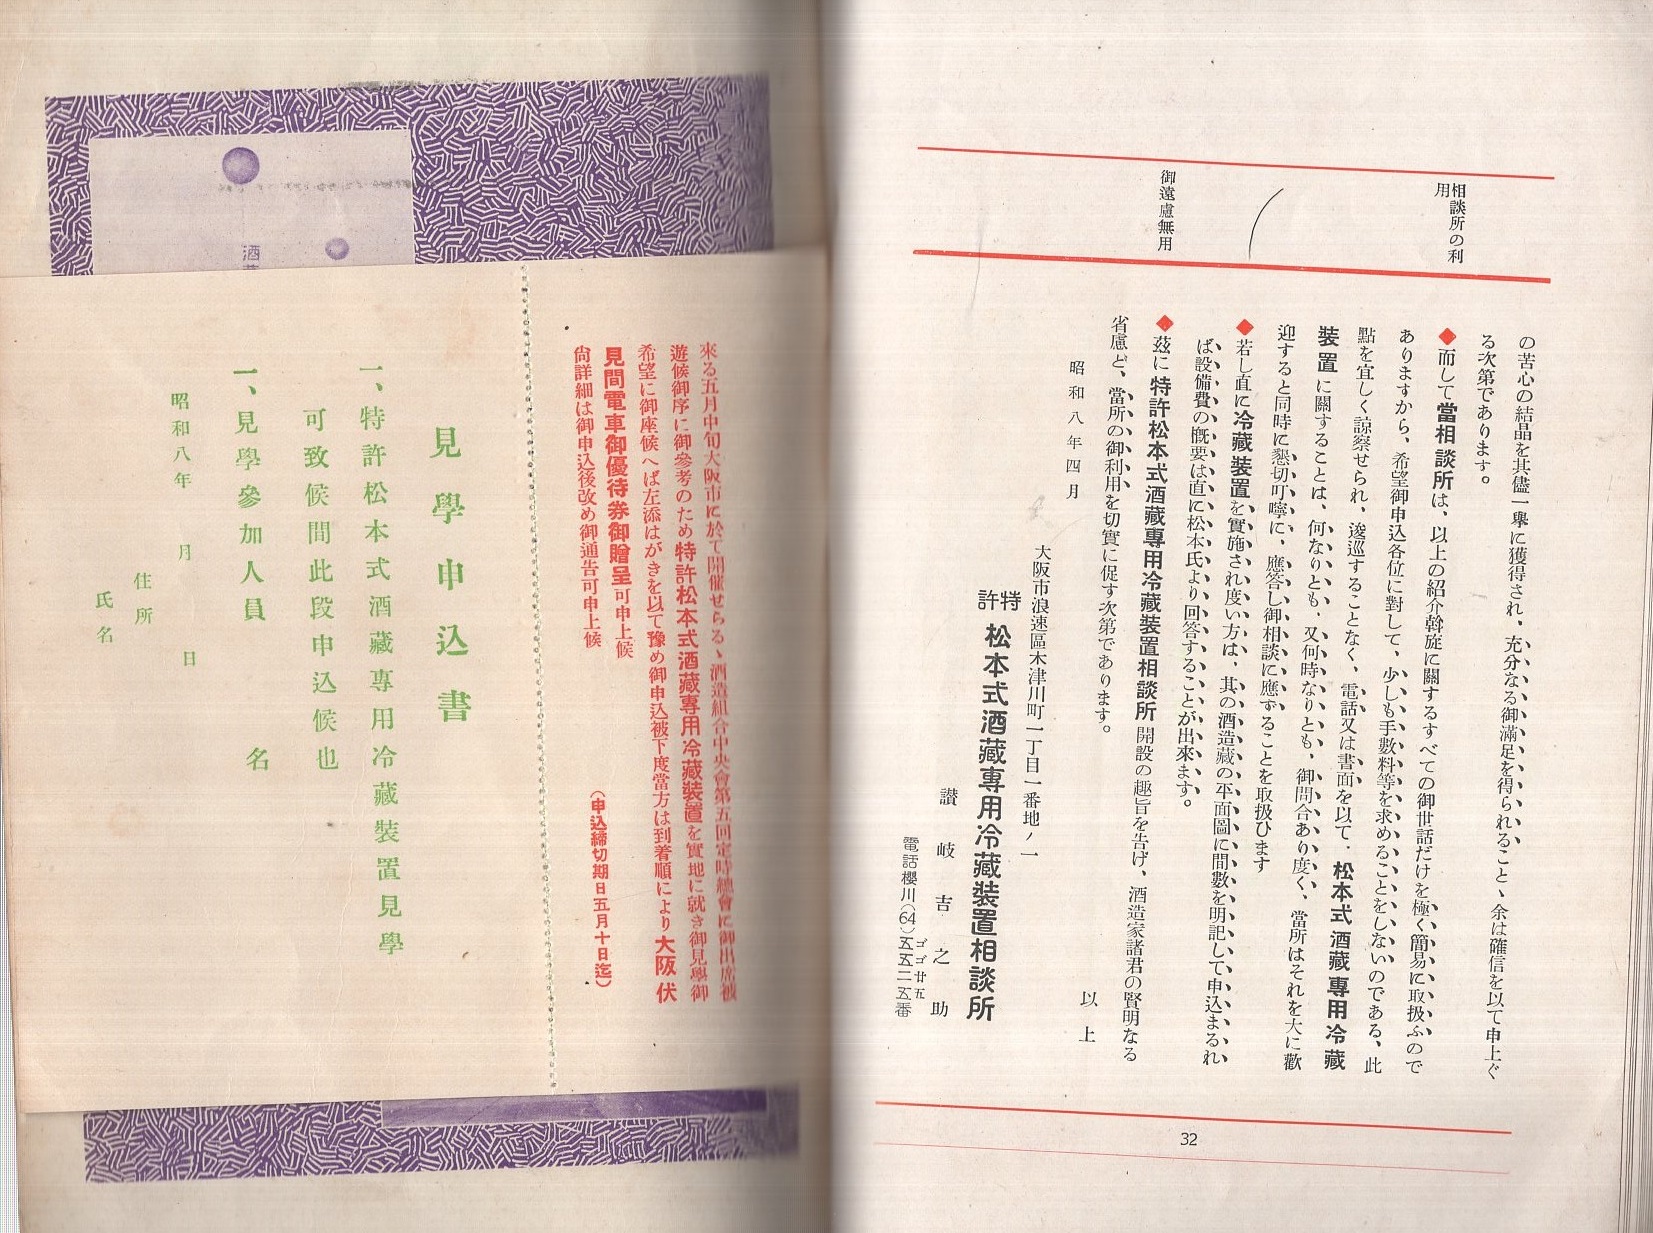 相談所の利
用
御遠慮無用
の苦心の結晶を其儘一擧に獲得され、充分なる御滿足を得られること、余は確信を以て申上ぐ
る次第であります。
◆而して當相談所は、以上の紹介斡旋に關するすべての御世話だけを極く簡易に取扱ふので
ありますから、希望御申込各位に對して、少しも手數料等を求めることをしないのである、此
點を宜しく諒察せられ、逡巡することなく、電話又は書面を以て、松本式酒藏專用冷藏
裝置に關することは、何なりとも、又何時なりとも、御問合あり度く、當所はそれを大に歡
迎すると同時に懇切叮嚀に、應答し御相談に應ずることを取扱ひます
◆若し直に冷藏裝置を實施され度い方は、其の酒造藏の平面圖に間數を明記して申込まるれ
ば設備費の概要は直に松本氏より回答することが出來ます。
◆玆に特許松本式酒藏專用冷藏裝置相談所開設の趣旨を告げ、酒造家諸君の賢明なる
省慮と、當所の御利用を切實に促す次第であります。
以上
昭和八年四月
大阪市浪速區木津川町一丁目一番地ノ一
特許 松本式酒藏專用冷藏裝置相談所
讃岐吉之助
ゴゴ廿五
電話櫻川(64)五五二五番
32
來る五月中旬大阪市に於て開催せらるゝ酒造組合中央會第五回定時總會に御出席被
遊候御序に御參考のため特許松本式酒藏專用冷藏裝置を實地に就き御見學御
希望に御座候へば左添はがきを以て豫め御申込被下度當方は到着順により大阪伏
見間電車御優待券御贈呈可申上候
尙詳細は御申込後改め御通告可申上候
(申込締切期日五月十日迄)
見學申込書
一、特許松本式酒藏專用冷藏裝置見學
可致候間此段申込候也
一、見學參加人員 名
昭和八年 月 日
住所
氏名
酒